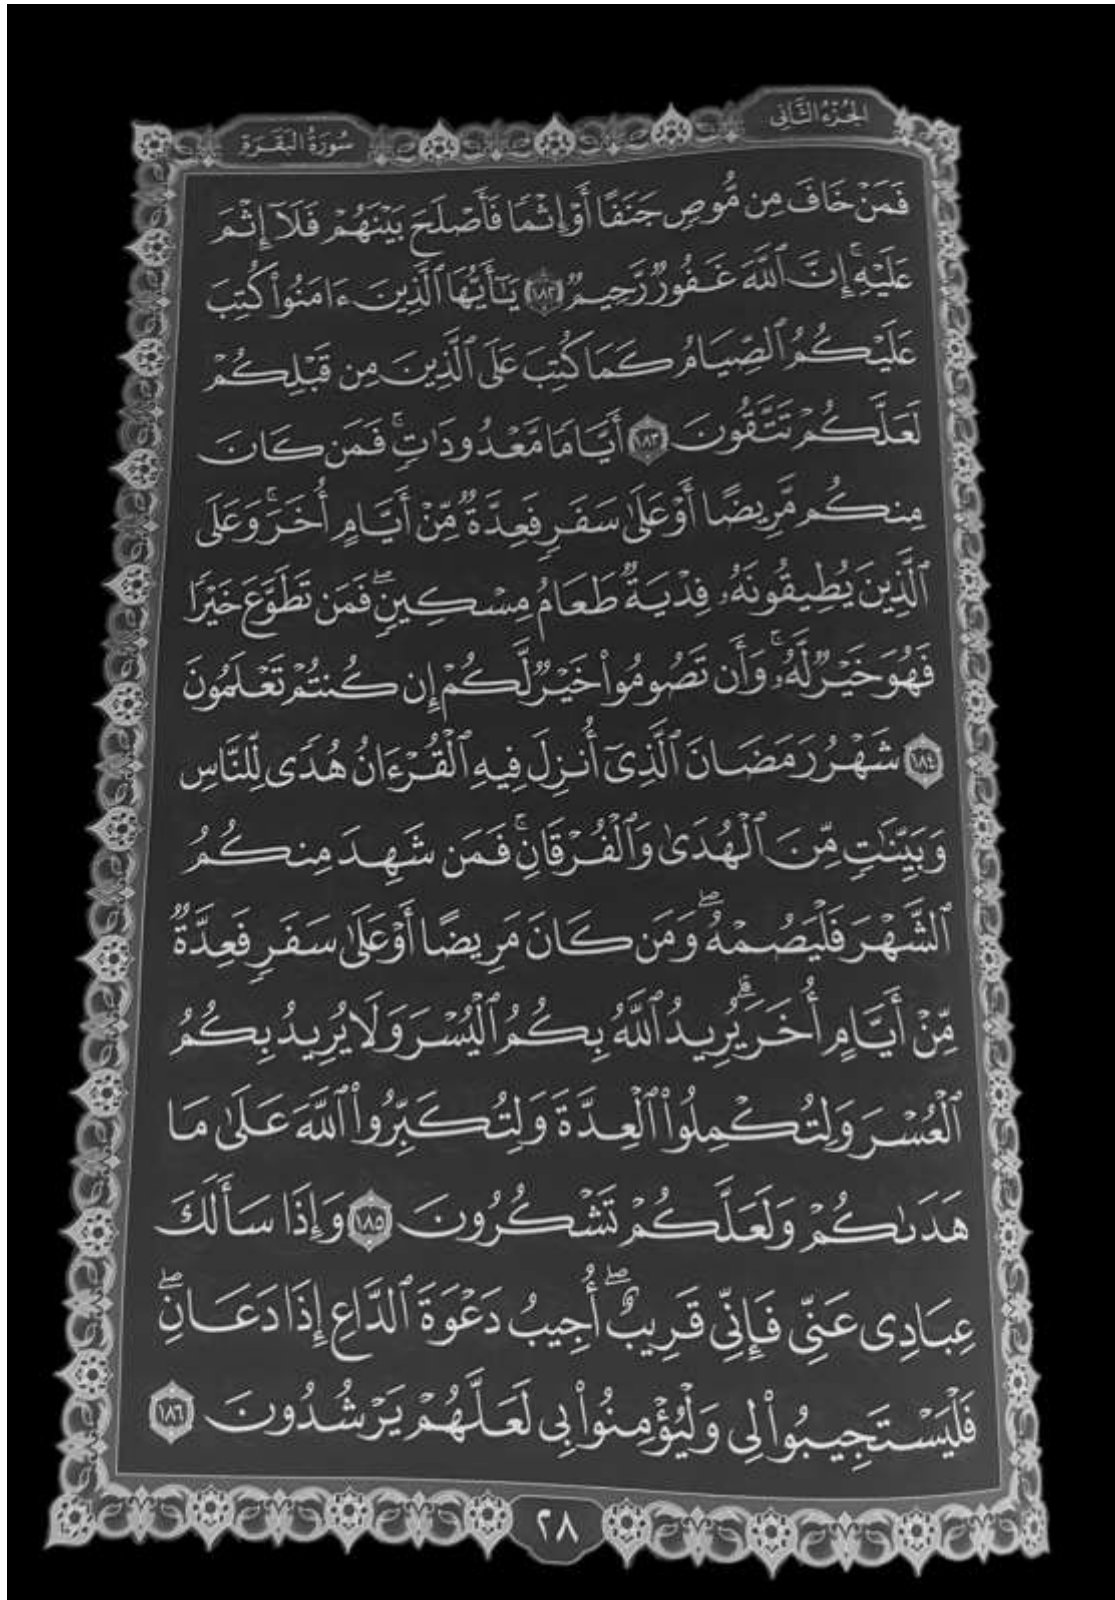 الجُزْءُ الثَّانِي
سُورَةُ البَقَرَةِ
فَمَنْ خَافَ مِن مُّوصٍ جَنَفًا أَوْ إِثْمًا فَأَصْلَحَ بَيْنَهُمْ فَلَآ إِثْمَ
عَلَيْهِۚ إِنَّ ٱللَّهَ غَفُورٌ رَّحِيمٌ ١٨٢ يَـٰٓأَيُّهَا ٱلَّذِينَ ءَامَنُواْ كُتِبَ
عَلَيْكُمُ ٱلصِّيَامُ كَمَا كُتِبَ عَلَى ٱلَّذِينَ مِن قَبْلِكُمْ
لَعَلَّكُمْ تَتَّقُونَ ١٨٣ أَيَّامًا مَّعْدُودَٰتٍۚ فَمَن كَانَ
مِنكُم مَّرِيضًا أَوْ عَلَىٰ سَفَرٍ فَعِدَّةٌ مِّنْ أَيَّامٍ أُخَرَۚ وَعَلَى
ٱلَّذِينَ يُطِيقُونَهُۥ فِدْيَةٌ طَعَامُ مِسْكِينٍۖ فَمَن تَطَوَّعَ خَيْرًا
فَهُوَ خَيْرٌ لَّهُۥۚ وَأَن تَصُومُواْ خَيْرٌ لَّكُمْ إِن كُنتُمْ تَعْلَمُونَ
١٨٤ شَهْرُ رَمَضَانَ ٱلَّذِىٓ أُنزِلَ فِيهِ ٱلْقُرْءَانُ هُدًى لِّلنَّاسِ
وَبَيِّنَـٰتٍ مِّنَ ٱلْهُدَىٰ وَٱلْفُرْقَانِۚ فَمَن شَهِدَ مِنكُمُ
ٱلشَّهْرَ فَلْيَصُمْهُۖ وَمَن كَانَ مَرِيضًا أَوْ عَلَىٰ سَفَرٍ فَعِدَّةٌ
مِّنْ أَيَّامٍ أُخَرَۗ يُرِيدُ ٱللَّهُ بِكُمُ ٱلْيُسْرَ وَلَا يُرِيدُ بِكُمُ
ٱلْعُسْرَ وَلِتُكْمِلُواْ ٱلْعِدَّةَ وَلِتُكَبِّرُواْ ٱللَّهَ عَلَىٰ مَا
هَدَىٰكُمْ وَلَعَلَّكُمْ تَشْكُرُونَ ١٨٥ وَإِذَا سَأَلَكَ
عِبَادِى عَنِّى فَإِنِّى قَرِيبٌۖ أُجِيبُ دَعْوَةَ ٱلدَّاعِ إِذَا دَعَانِۖ
فَلْيَسْتَجِيبُواْ لِى وَلْيُؤْمِنُواْ بِى لَعَلَّهُمْ يَرْشُدُونَ ١٨٦
٢٨